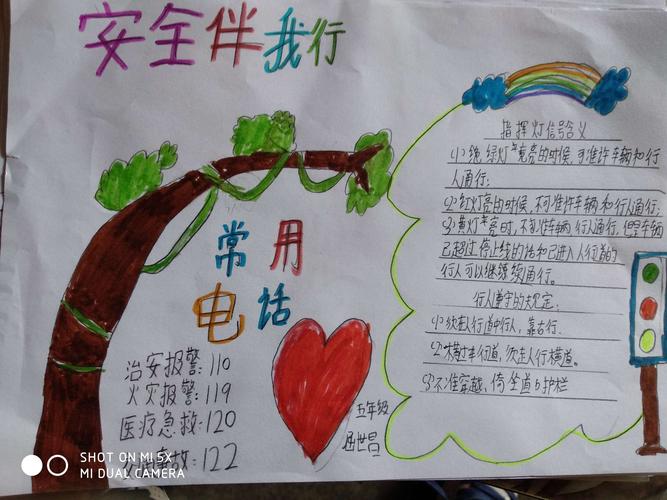 安全伴我行
常用
电话
治安报警:110
火灾报警:119
医疗急救:120
事故:122
五年级
指挥灯信号含义
(1)绿灯亮的时候,可准许车辆和行
人通行;
(2)红灯亮的时候,不可准许车辆和行人通行;
(3)黄灯亮时,不可准车辆,行人通行,但是车辆
已超过停止线的话和已进入人行道的
行人可以继续通行。
行人遵守的规定:
(1)须走人行道中行人,靠右行.
(2)横过车行道,须走人行横道。
(3)不准穿越,倚坐道口护栏
SHOT ON MI 5X
MI DUAL CAMERA